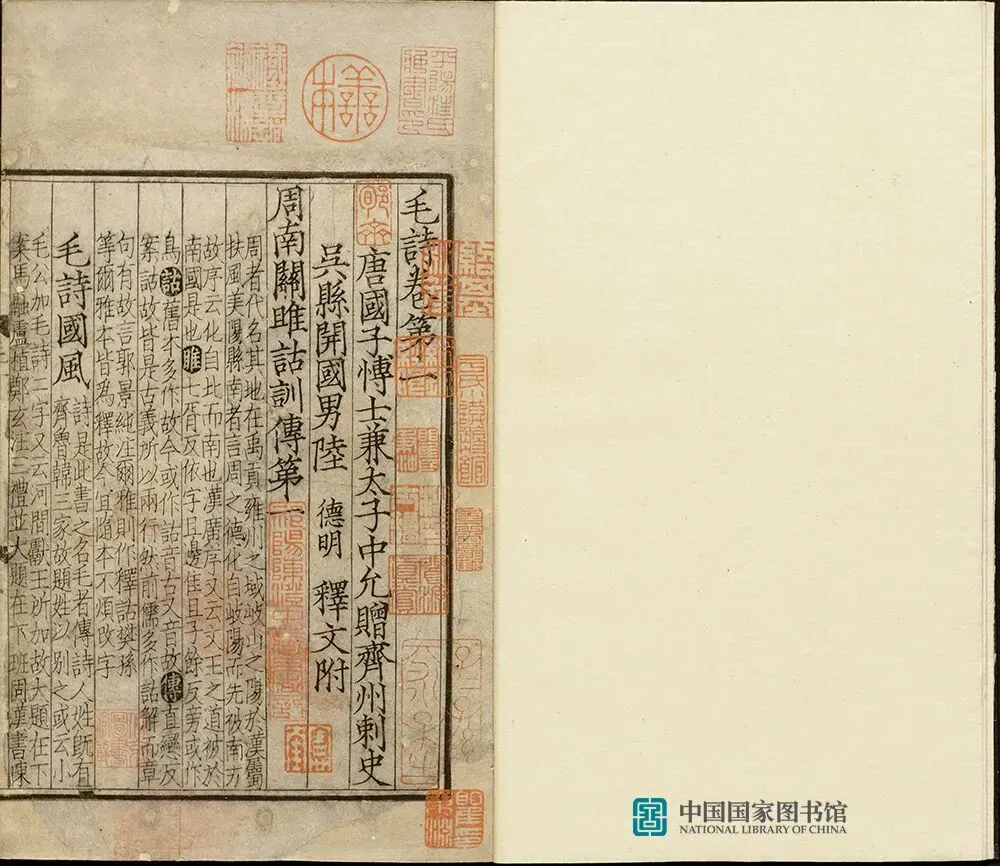 毛詩卷第一
唐國子博士兼太子中允贈齊州刺史
吳縣開國男陸 德明 釋文附
周南關雎詁訓傳第一
周者代名其地在禹貢雍州之域岐山之陽於漢屬
扶風美陽縣南者言周之德化自岐陽而先被南方
故序云化自北而南也漢廣序又云文王之道被於
南國是也雎七胥反依字且邊隹且音子餘反旁或作
鳥詁舊本多作故今或作詁音古又音故傳直戀反
案詁故皆是古義所以兩行然前儒多作詁解而章
句有故言郭景純注爾雅則作釋詁樊孫
等爾雅本皆為釋故今宜隨本不煩改字
毛詩國風
詩是此書之名毛者傳詩人姓既有
齊魯韓三家故題姓以別之或云小
毛公加毛詩二字又云河間獻王所加故大題在下
案馬融盧植鄭玄注三禮並大題在下班固漢書陳
中国国家图书馆
NATIONAL LIBRARY OF CHINA